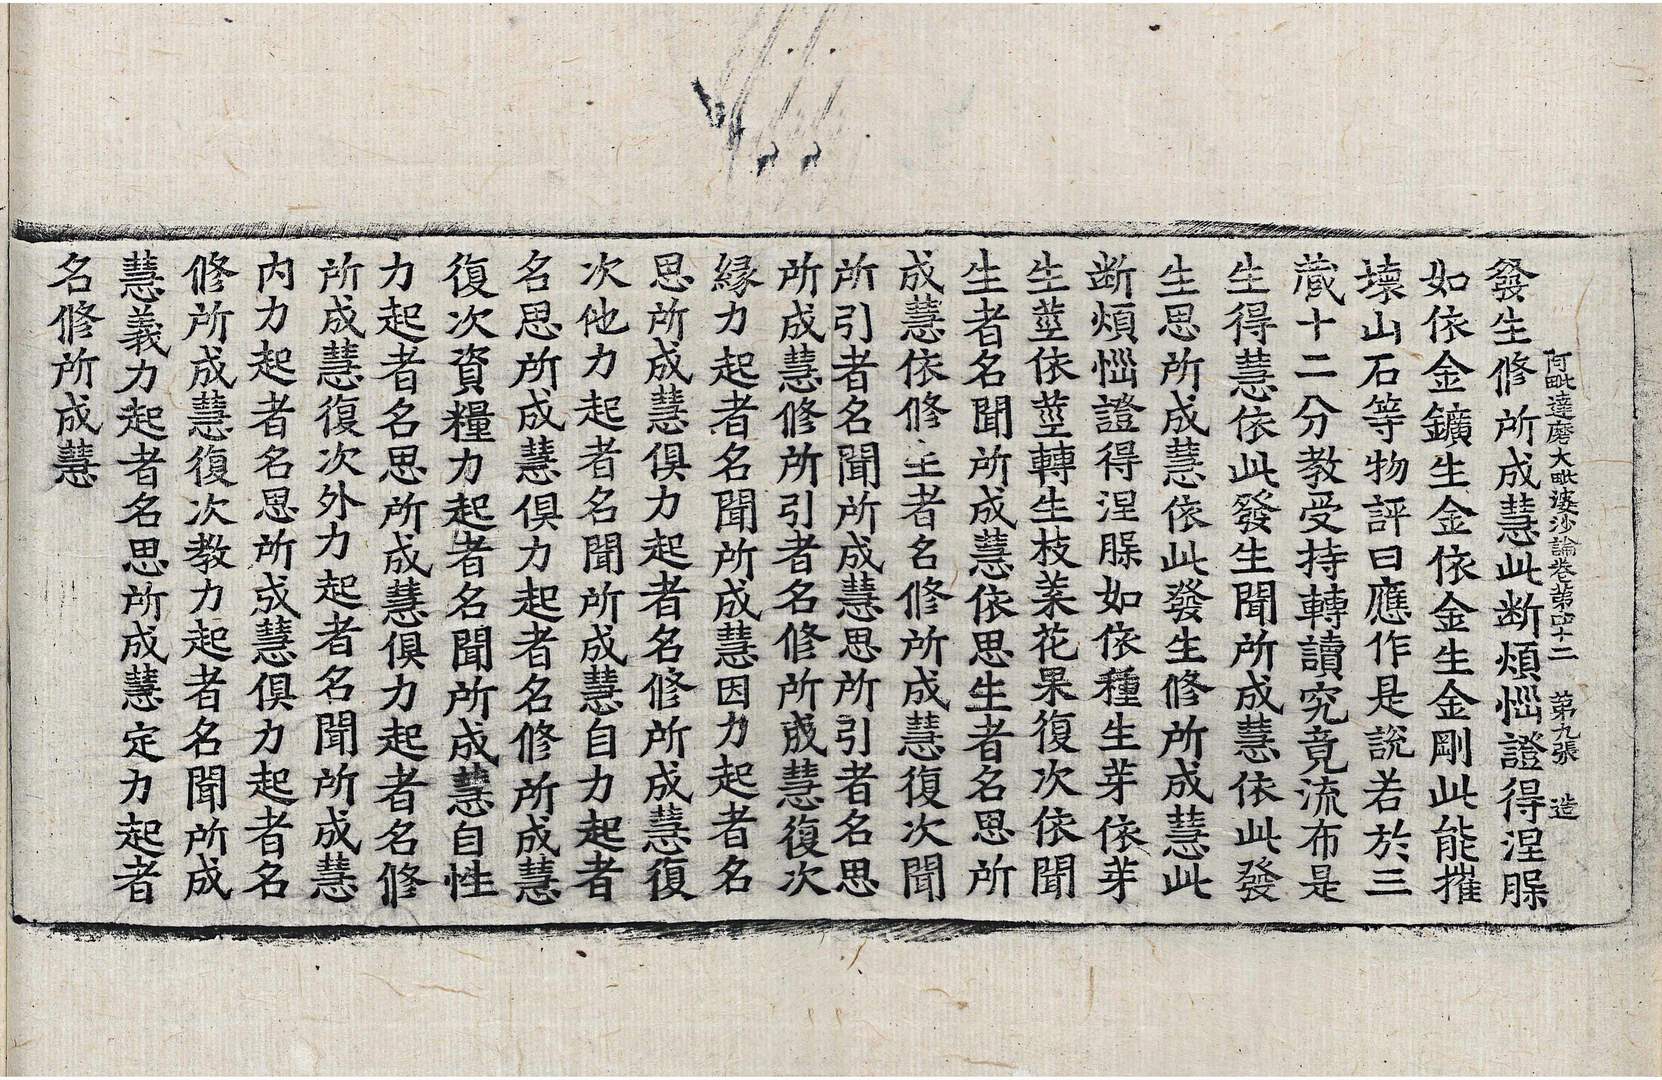 阿毗達磨大毗婆沙論卷第四十二 第九張 造
發生修所成慧此断煩惱證得涅槃
如依金鑛生金依金生金剛此能摧
壞山石等物評曰應作是說若於三
藏十二分教受持轉讀究竟流布是
生得慧依此發生聞所成慧依此發
生思所成慧依此發生修所成慧此
断煩惱證得涅槃如依種生芽依芽
生莖依莖轉生枝葉花果復次依聞
生者名聞所成慧依思生者名思所
成慧依修生者名修所成慧復次聞
所引者名聞所成慧思所引者名思
所成慧修所引者名修所成慧復次
縁力起者名聞所成慧因力起者名
思所成慧俱力起者名修所成慧復
次他力起者名聞所成慧自力起者
名思所成慧俱力起者名修所成慧
復次資糧力起者名聞所成慧自性
力起者名思所成慧俱力起者名修
所成慧復次外力起者名聞所成慧
内力起者名思所成慧俱力起者名
修所成慧復次教力起者名聞所成
慧義力起者名思所成慧定力起者
名修所成慧